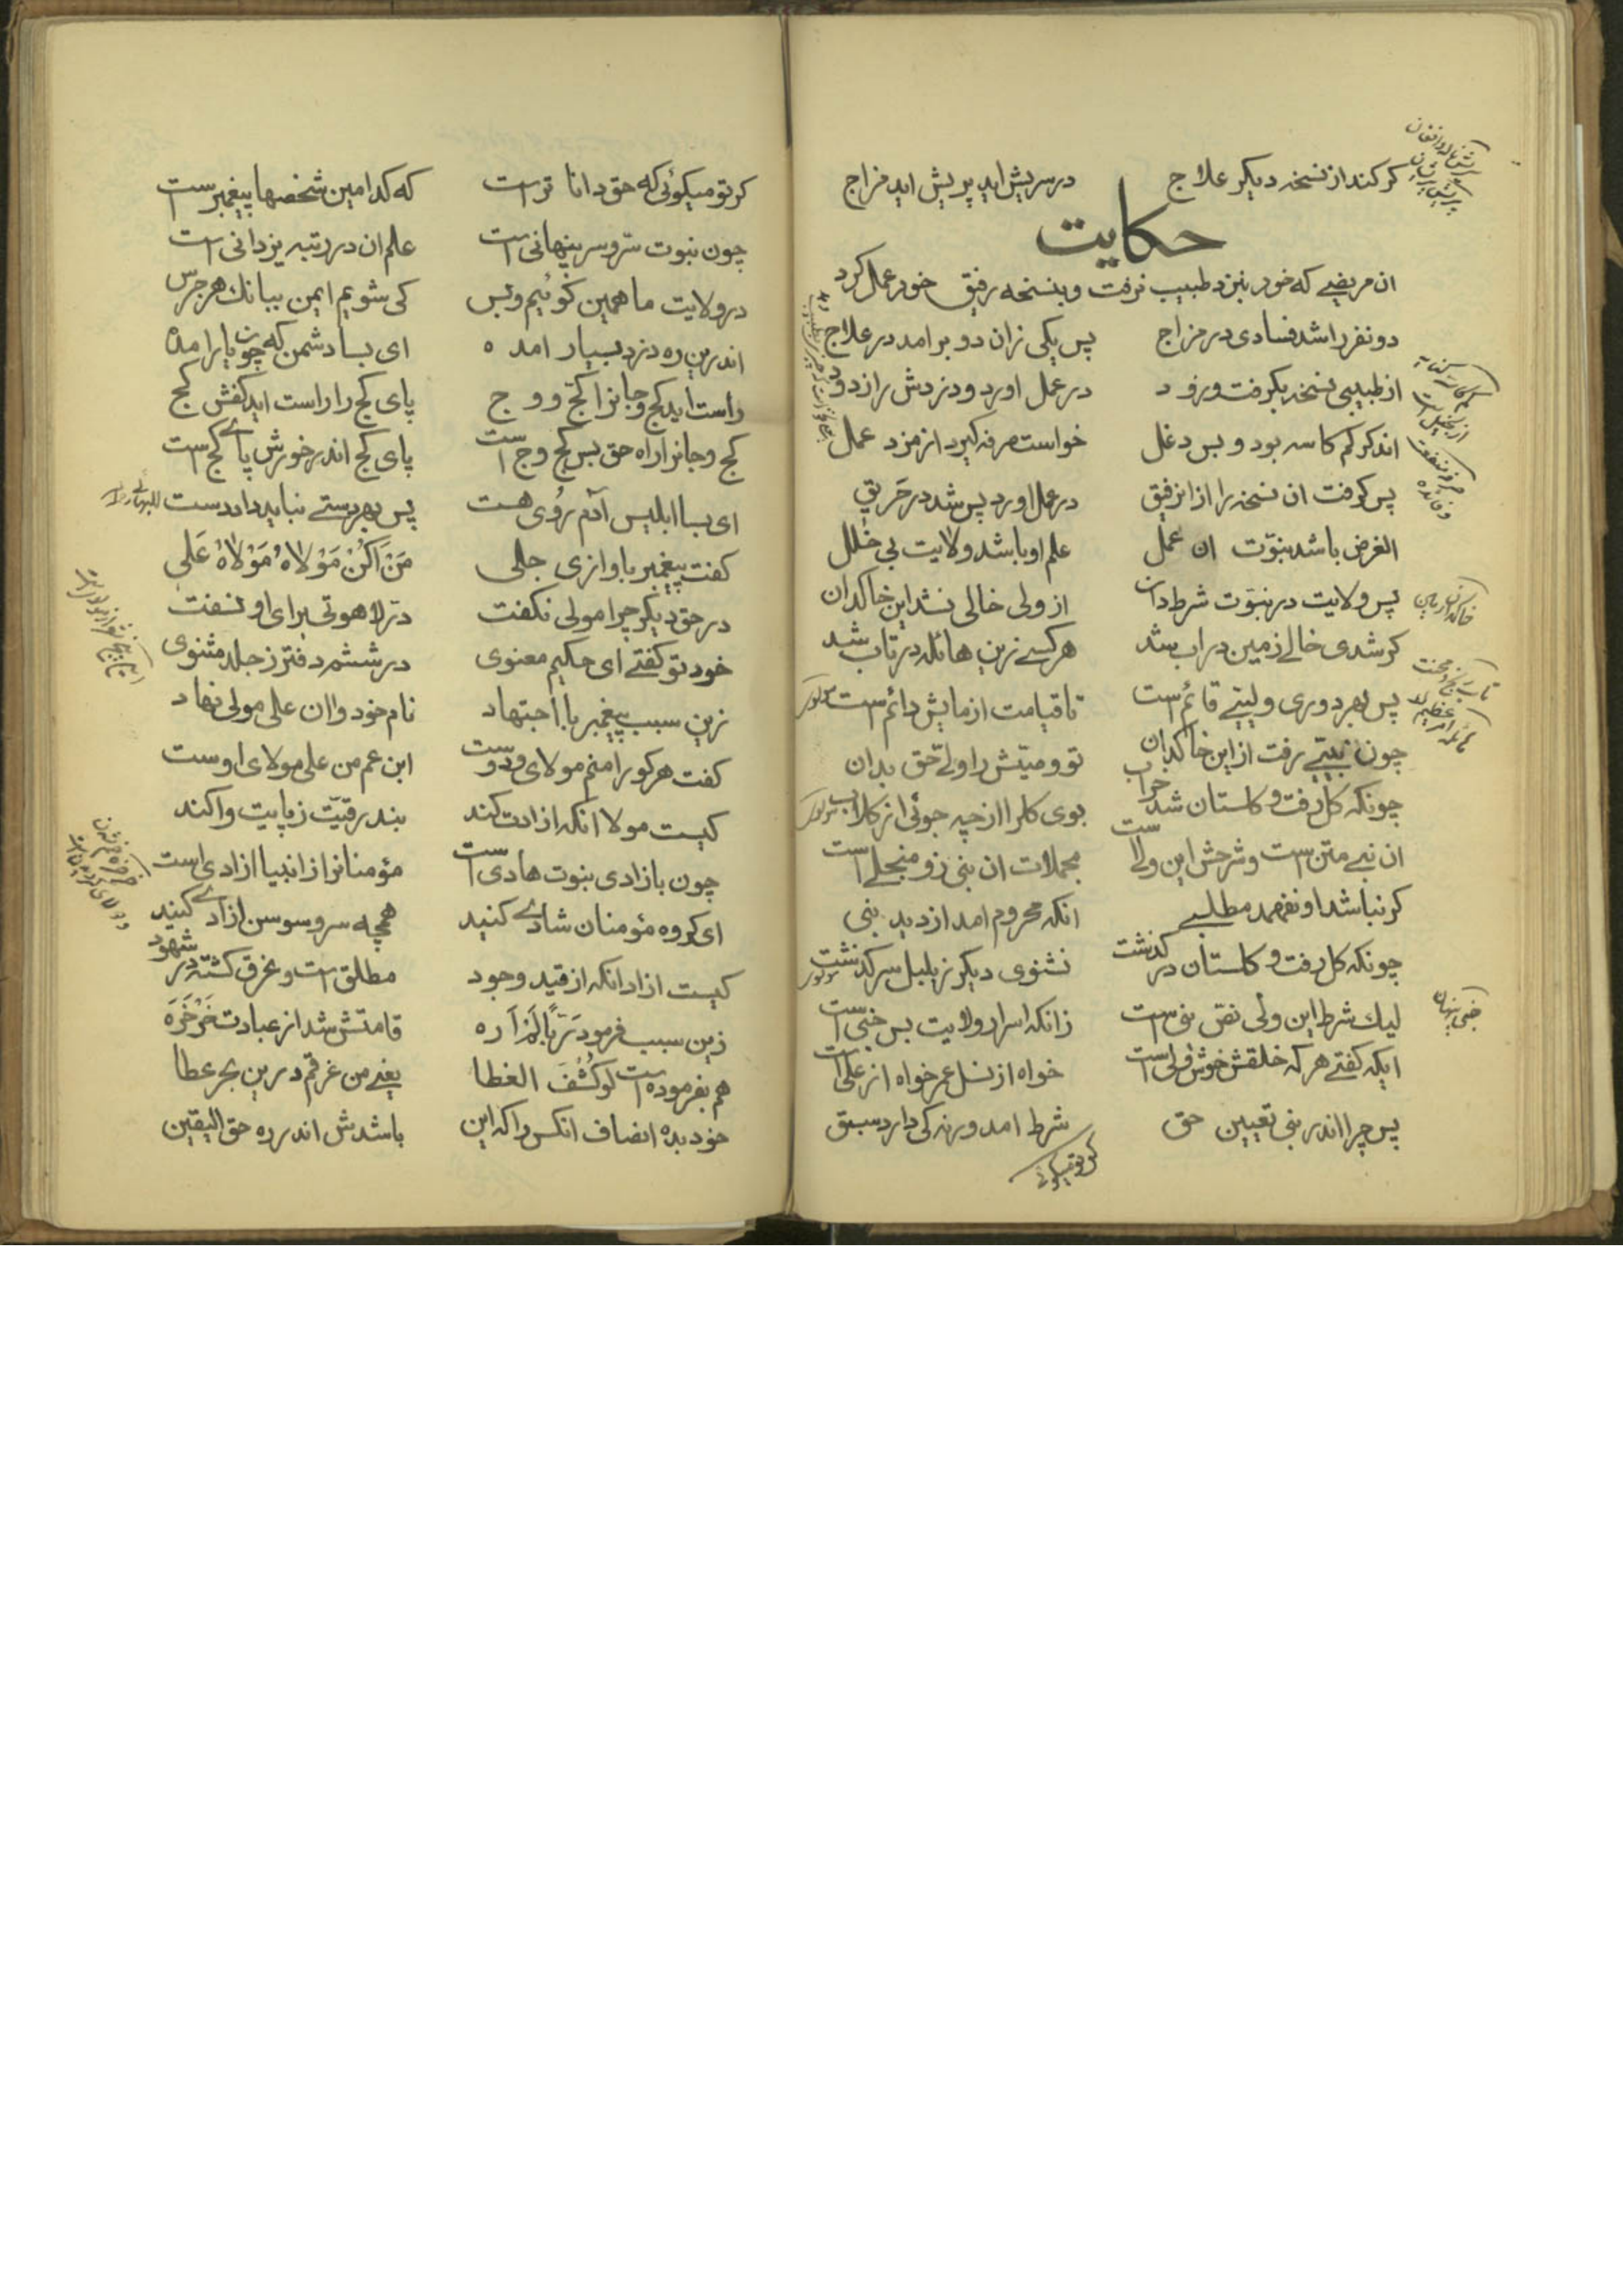 کر کند از نسخه دیکر علاج درسریش اید پریش اید مزاج
حکایت
ان مریضے که خود بنزد طبیب نرفت و بنسخه رفیق خود عمل کرد
دو نفر را شد فسادی در مزاج پس یکی زان دو برامد در علاج
از طبیبی نسخه بکرفت و زود در عمل اورد و دردش را زدود
اندکر کم کاسه بود و بس دغل خواست صرفه کیرد از مزد عمل
پس کرفت ان نسخه را از ان رفیق در عمل اورد پس شد در حَریق
الغرض باشد نبوّت ان عمل علم او باشد ولایت بی خلل
پس ولایت در نبوّت شرط دان از ولی خالی نشد این خاکدان
کر شدی خالے زمین در اب شد هر کسے زین هائله در تاب شد
پس بهر دوری ولیّے قائم است تا قیامت ازمایش دائم است
چون نبیّے رفت از این خاکدان تو وصیّتش را ولے حق بدان
چونکه کل رفت و کلستان شد خراب بوی کل را از چه جوئی از کلاب
ان نبے متن است و شرحش این ولا ست مجملات ان نبی زو منجلے است
کر نباشد او نفهمد مطلبے انکه محروم امد از دید نبی
چونکه کل رفت و کلستان در کذشت نشنوی دیکر ز بلبل سرکذشت
لیك شرط این ولی نصّ نبی است زانکه اسرار ولایت بس خفی است
ایکه کفتے هر که خلقش خوش ولی است خواه از نسل عمر خواه از علی است
پس چرا اندر نبی تعیین حق شرط امد ورنه کی دارد سبق
کر تو میکوئی
کر تو میکوئی که حق دانا تر است که کدامین شخصها پیغمبر ست
چون نبوت سرّ و سر پنهانی است علم ان در رتبه یزدانی است
در ولایت ما همین کوئیم و بس کی شویم ایمن ببانك هر جرس
اندرین ره دزد بسیار امده ای بسا دشمن که چون یار امده
راست اید کج و جانرا کجّ و وج پای کج را راست اید کفش کج
کج و جانرا راه حق بس کج و وج است پای کج اندر خورش پاے کج است
ای بسا ابلیس آدم رُوی هست پس بهر دستے نباید داد دست
کفت پیغمبر باوازی جلی مَنْ اَکُنْ مَوْلاهُ مَوْلاهُ عَلی
در حق دیکر چرا مولی نکفت درّ لاهوتی برای او نسفت
خود تو کفتے ای حکیم معنوی در ششم دفتر ز جلد مثنوی
زین سبب پیغمبر با اجتهاد نام خود وان علی مولی نهاد
کفت هر کو را منم مولای و دوست ابن عم من علی مولای اوست
کیست مولا انکه ازادت کند بند رقیّت ز پایت وا کند
چون بازادی نبوت هادی است مؤمنانرا از انبیا ازادی است
ای کروه مؤمنان شادے کنید همچه سرو سوسن ازادے کنید
کیست ازاد انکه از قید وجود مطلق است و غرق کشته در شهود
زین سبب فرمود رَبّاً لَمْ اَرَه قامتش شد از عبادت خَرخَرَه
هم بفرموده است لوکُشُفَ الغطا یعنے من غرقم درین بحر عطا
خود بده انصاف انکس را که این باشدش اندر ره حق الیقین